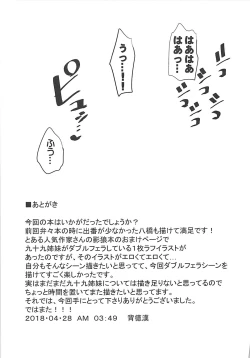 はあはあ
はあっ…
うっ…！！
ピュッ…
ふぅ…
■あとがき
今回の本はいかがだったでしょうか？
前回弁々本の時に出番が少なかった八橋も描けて満足です！
とある人気作家さんの影狼本のおまけページで
九十九姉妹がダブルフェラしている1枚ラフイラストが
あったのですが、そのイラストがエロくてエロくて…
自分もそんなシーン描きたいと思ってて、今回ダブルフェラシーンを
描けてすごく楽しかったです。
実はまだまだ九十九姉妹については描き足りないと思ってるので
ちょっと時間を置いてまた描きたいと思ってます。
それでは、今回手にとって下さりありがとうございました。
ではまた！！！
2018・04・28　AM　03:49　背徳漢